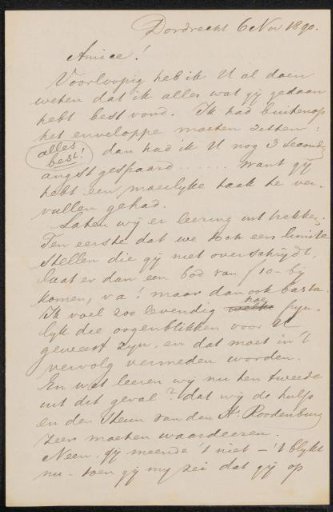 Dordrecht 6 Nov 1890.
Amice!
Voorloopig heb ik U al doen
weten dat ik alles wat gij gedaan
hebt best vond. Ik had buitenop
het enveloppe moeten zetten:
(alles best!) dan had ik U nog 3 second.
angst gespaard.... want gij
hebt een moeilyke taak te ver-
vullen gehad.
Laten wij er leering uit trekken.
Ten eerste dat we ook een limite
stellen die gij niet overschrijdt,
laat er dan een bod van ƒ10- by
komen, va! maar dan ook basta.
Ik voel zoo levendig welke hoe pyn-
lyk die oogenblikken voor U
geweest zyn, en dat moet in 't
vervolg vermeden worden.
En wat leeren wij nu ten tweede
uit dit geval? dat wij de hulp
en den steun van den Hr Roodenburg
zeer moeten waardeeren.
Neen gij meende 't niet - 't blykt
nu - toen gij my zei dat gij op